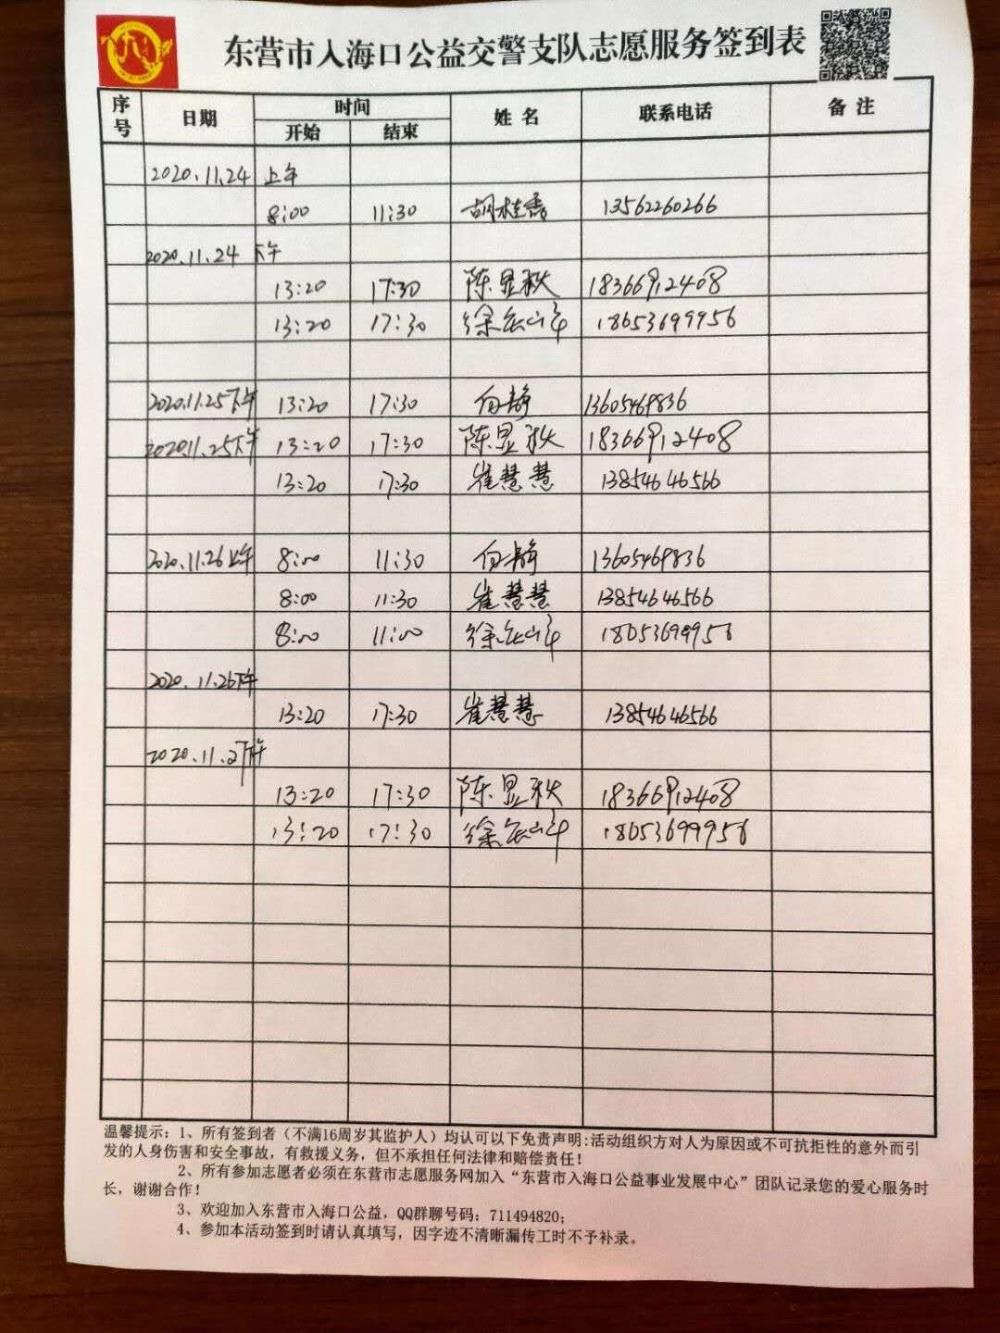 东营市入海口公益交警支队志愿服务签到表
序号 日期 时间 姓名 联系电话 备注
开始 结束
2020.11.24 上午
8:00 11:30 胡桂香 13562260266
2020.11.24 下午
13:20 17:30 陈显秋 18366912408
13:20 17:30 徐 18653699956
2020.11.25下午 13:20 17:30 向静 13605469836
2020.11.25下午 13:20 17:30 陈显秋 18366912408
13:20 17:30 崔慧慧 13854646566
2020.11.26上午 8:00 11:30 向静 13605469836
8:00 11:30 崔慧慧 13854646566
8:00 11:00 徐 18653699956
2020.11.26下午
13:20 17:30 崔慧慧 13854646566
2020.11.27下午
13:20 17:30 陈显秋 18366912408
13:20 17:30 徐 18653699956
温馨提示:1、所有签到者(不满16周岁其监护人)均认可以下免责声明:活动组织方对人为原因或不可抗拒性的意外而引
发的人身伤害和安全事故,有救援义务,但不承担任何法律和赔偿责任!
2、所有参加志愿者必须在东营市志愿服务网加入“东营市入海口公益事业发展中心”团队记录您的爱心服务时
长,谢谢合作!
3、欢迎加入东营市入海口公益,QQ群聊号码:711494820;
4、参加本活动签到时请认真填写,因字迹不清晰漏传工时不予补录。